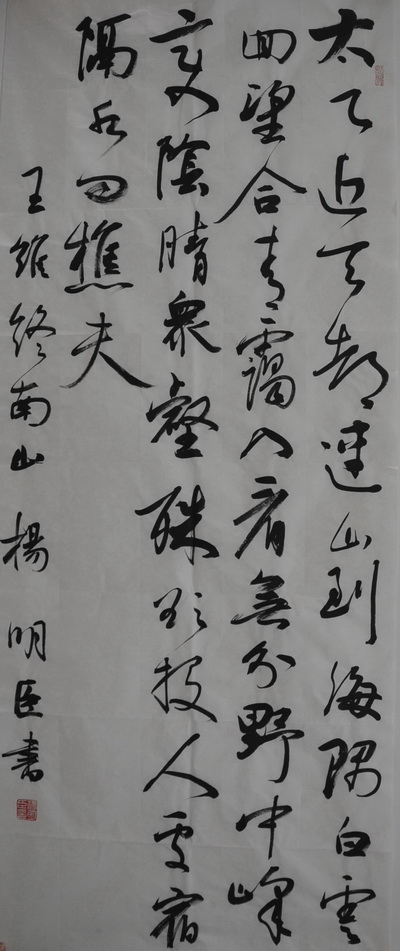 太乙近天都連山到海隅白雲
回望合青靄入看無分野中峰
變陰晴衆壑殊欲投人處宿
隔水問樵夫
王維終南山 楊明臣書